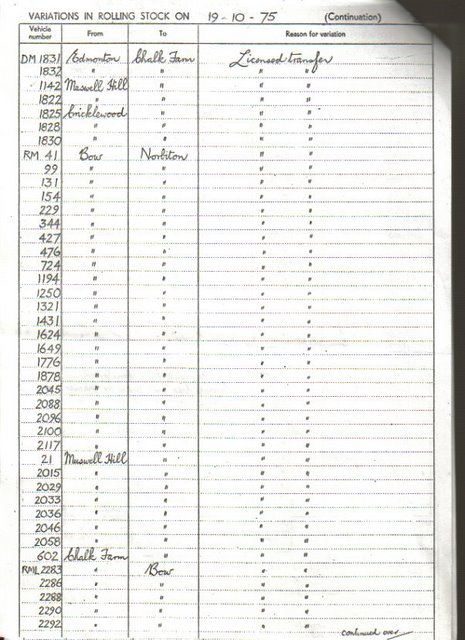 VARIATIONS IN ROLLING STOCK ON 19-10-75 (Continuation)
Vehicle number From To Reason for variation
DM 1831 Edmonton Chalk Farm Licensed transfer
1832 " " " "
1142 Muswell Hill " " "
1822 " " " "
1825 Cricklewood " " "
1828 " " " "
1830 " " " "
RM 41 Bow Norbiton " "
99 " " " "
131 " " " "
154 " " " "
229 " " " "
344 " " " "
427 " " " "
476 " " " "
724 " " " "
1194 " " " "
1250 " " " "
1321 " " " "
1431 " " " "
1624 " " " "
1649 " " " "
1776 " " " "
1878 " " " "
2045 " " " "
2088 " " " "
2096 " " " "
2100 " " " "
2117 " " " "
21 Muswell Hill " " "
2015 " " " "
2029 " " " "
2033 " " " "
2036 " " " "
2046 " " " "
2058 " " " "
602 Chalk Farm " " "
RML 2283 " Bow " "
2286 " " " "
2288 " " " "
2290 " " " "
2292 " " " "
continued over